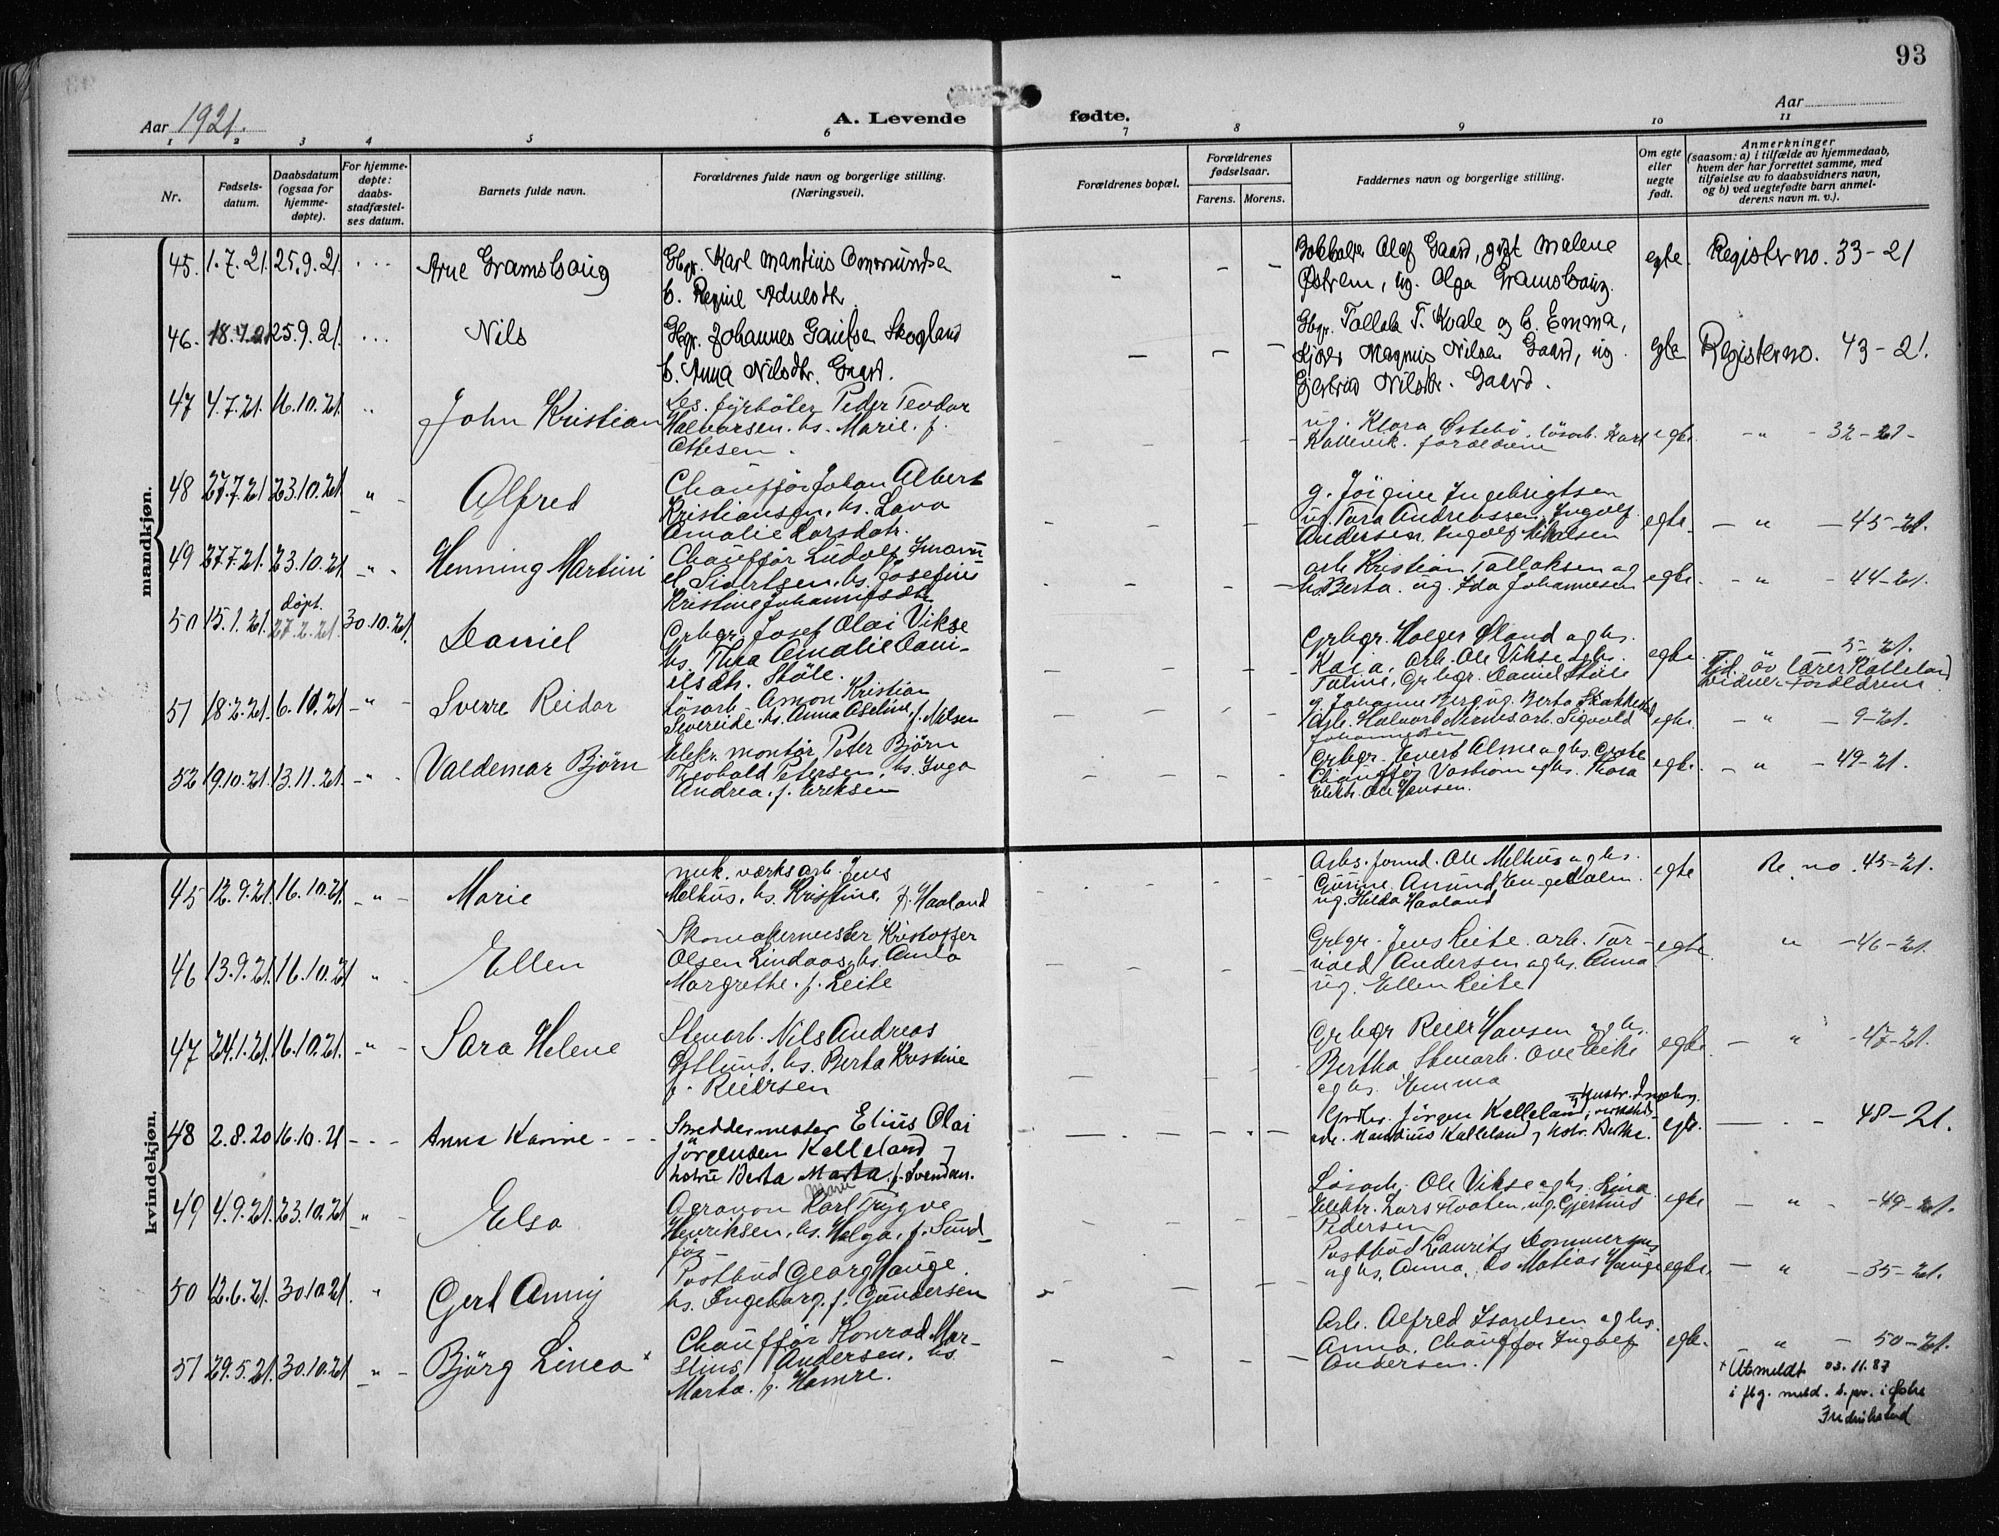 93
Aar 1921.
A. Levende fødte.
Aar
1 2 3 4 5 6 7 8 9 10 11
Nr.
Fødsels-
datum.
Daabsdatum
(ogsaa for
hjemme-
døpte).
For hjemme-
døpte:
daabs-
stadfæstel-
ses datum.
Barnets fulde navn.
Forældrenes fulde navn og borgerlige stilling.
(Næringsvei).
Forældrenes bopæl.
Forældrenes
fødselsaar.
Farens. Morens.
Faddernes navn og borgerlige stilling.
Om egte
eller
uegte
født.
Anmerkninger
(saasom: a) i tilfælde av hjemmedaab,
hvem der har forrettet samme, med
tilføielse av to daabsvidners navn,
og b) ved uegtefødte barn anmel-
derens navn m. v.).
mandkjøn.
45. 1.7.21. 25.9.21. Arne Gramshaug
Gbgr. Karl Mantius Ommundsen
h. Regine
Olaf Gaard, gift Malene
Østrem, ug. Olga Gramshaug.
egte. Register no. 33-21
46. 18.7.21 25.9.21. Nils
Gbgr. Johannes Skogland
h. Anna Nilsdtr. Gaard.
Gbgr. Tallak T. Kvale og h. Emma,
Magnus Nilsen Gaard, ug.
Nilsdtr. Gaard.
egte Register no. 43-21.
47 4.7.21. 16.10.21. " John Kristian
Les. fyrbøter Peder Teodor
Halvorsen. hs. Marie. f.
Ottesen.
ug. Klara Østebø. løsarb. Karl
Kallevik. forældrene
egte. - " - 32-21-
48 27.7.21 23.10.21 " - Alfred
Chauffør Johan Albert
Kristiansen, hs. Lava
Amalie Larsdatr.
g. Jørgine Ingebrigtsen
ug. Tora Andreassen, Ingolf
Andersen, Ingolf
egte. - " - 45-21.
49 27.7.21. 23.10.21. " - Henning Martini
Chauffør Ludolf
Sivertsen. hs. Josefine
Kristine Johannesdtr
arb. Kristian Tollaksen og
hs Berta. ug. Ida Johannessen
egte - " - 44-21.
50 15.1.21. døpt. 27.2.21. 30.10.21. Daniel
Grbgr. Josef Olai Vikse
hs. Thea Amalie Dani-
elsdtr. Støle.
Grbgr. Holger Øland og hs.
Kaia, Arb. Ole Vikse og hs.
Taline, Grbgr. Daniel Støle
egte. 5-21.
av lærer Kalleland
vidner Forældrene
51 18.2.21. 6.11.21 - " - Sverre Reidar
Løsarb. Amon Kristian
Svereide. hs. Anna Aseline, f. Nilsen
g. Johanne Berg, ug. Berta
Arb. Halvard Nernes arb. Sigvald
Johannesen
egte. - " - 9-21.
52 19.10.21. 13.11.21 - " - Valdemar Bjørn
Elekr. montør Peter Bjørn
Theobald Petersen, hs. Inga
Andrea. f. Eriksen
Grbgr. Evert Alme og hs. Grete
Chauffør Vastrom og hs. Thora
Elektr. Ole Hansen.
egte. - " - 49-21.
kvindekjøn.
45 12.9.21. 16.10.21. - " - Marie
mek. værksarb. Jens
Melhus, hs. Kristine, f. Haaland
Arbs. formd. Ole Melhus og hs.
Gurine. Amund Engedalen.
ug. Hilda Haaland
egte Re. no. 45-21.
46 13.9.21. 16.10.21 " Ellen
Skomakermester Kristoffer
Olsen Lindaas, hs. Amla
Margrethe. f. Leite
Grbgr. Jens Leite. arb. Tor-
vald Andersen og hs. Anna
ug. Ellen Leite
egte. " - 46-21.
47 24.1.21. 16.10.21. - " - Sara Helene
Stenarb. Nils Andreas
Østlund, hs. Berta Kristine
f. Reiersen
Grbgr Reier Hansen og hs.
Bertha Stenarb. Ove Eike
og hs. Emma
egte. - " - 47-21.
48 2.8.20 16.10.21 - - - Anna Karine - - -
Smeddermester Elius Olai
Jörgensen Kalleland og
hstrü Berta Marta f. Svendsen.
Grbr. Jörgen Kalleland og hustr. Ingeborg,
arb. Mandius Kalleland og hstr. Berthe.
egte. 48-21.
49 4.9.21. 23.10.21 " - Elsa
Agronom Karl Trygve
Henriksen, hs. Helga, f. Sund-
før
Løsarb. Ole Vikse og hs. Lina
Elektr. Lars Hvaten, ug. Gjertine
Pedersen
egte - " - 49-21.
50 12.6.21. 30.10.21. " Gerd Anny
Postbud Georg Hauge.
hs. Ingeborg. f. Gundersen
Postbud Laurits
og hs. Anna. Matias Hauge
egte. - " - 35-21.
51 29.5.21. 30.10.21 - " - Bjørg Linea ×
Chauffør Konrad Mar-
tinus Andersen, hs.
Marta. f. Hamre.
Arb. Alfred Isaelsen og hs.
Anna, Chauffør Ingolf
Andersen.
egte. - " - 50-21.
× Utmeldt 03.11.83
i flg. meld. s. pr. i Østre
Fredrikstad